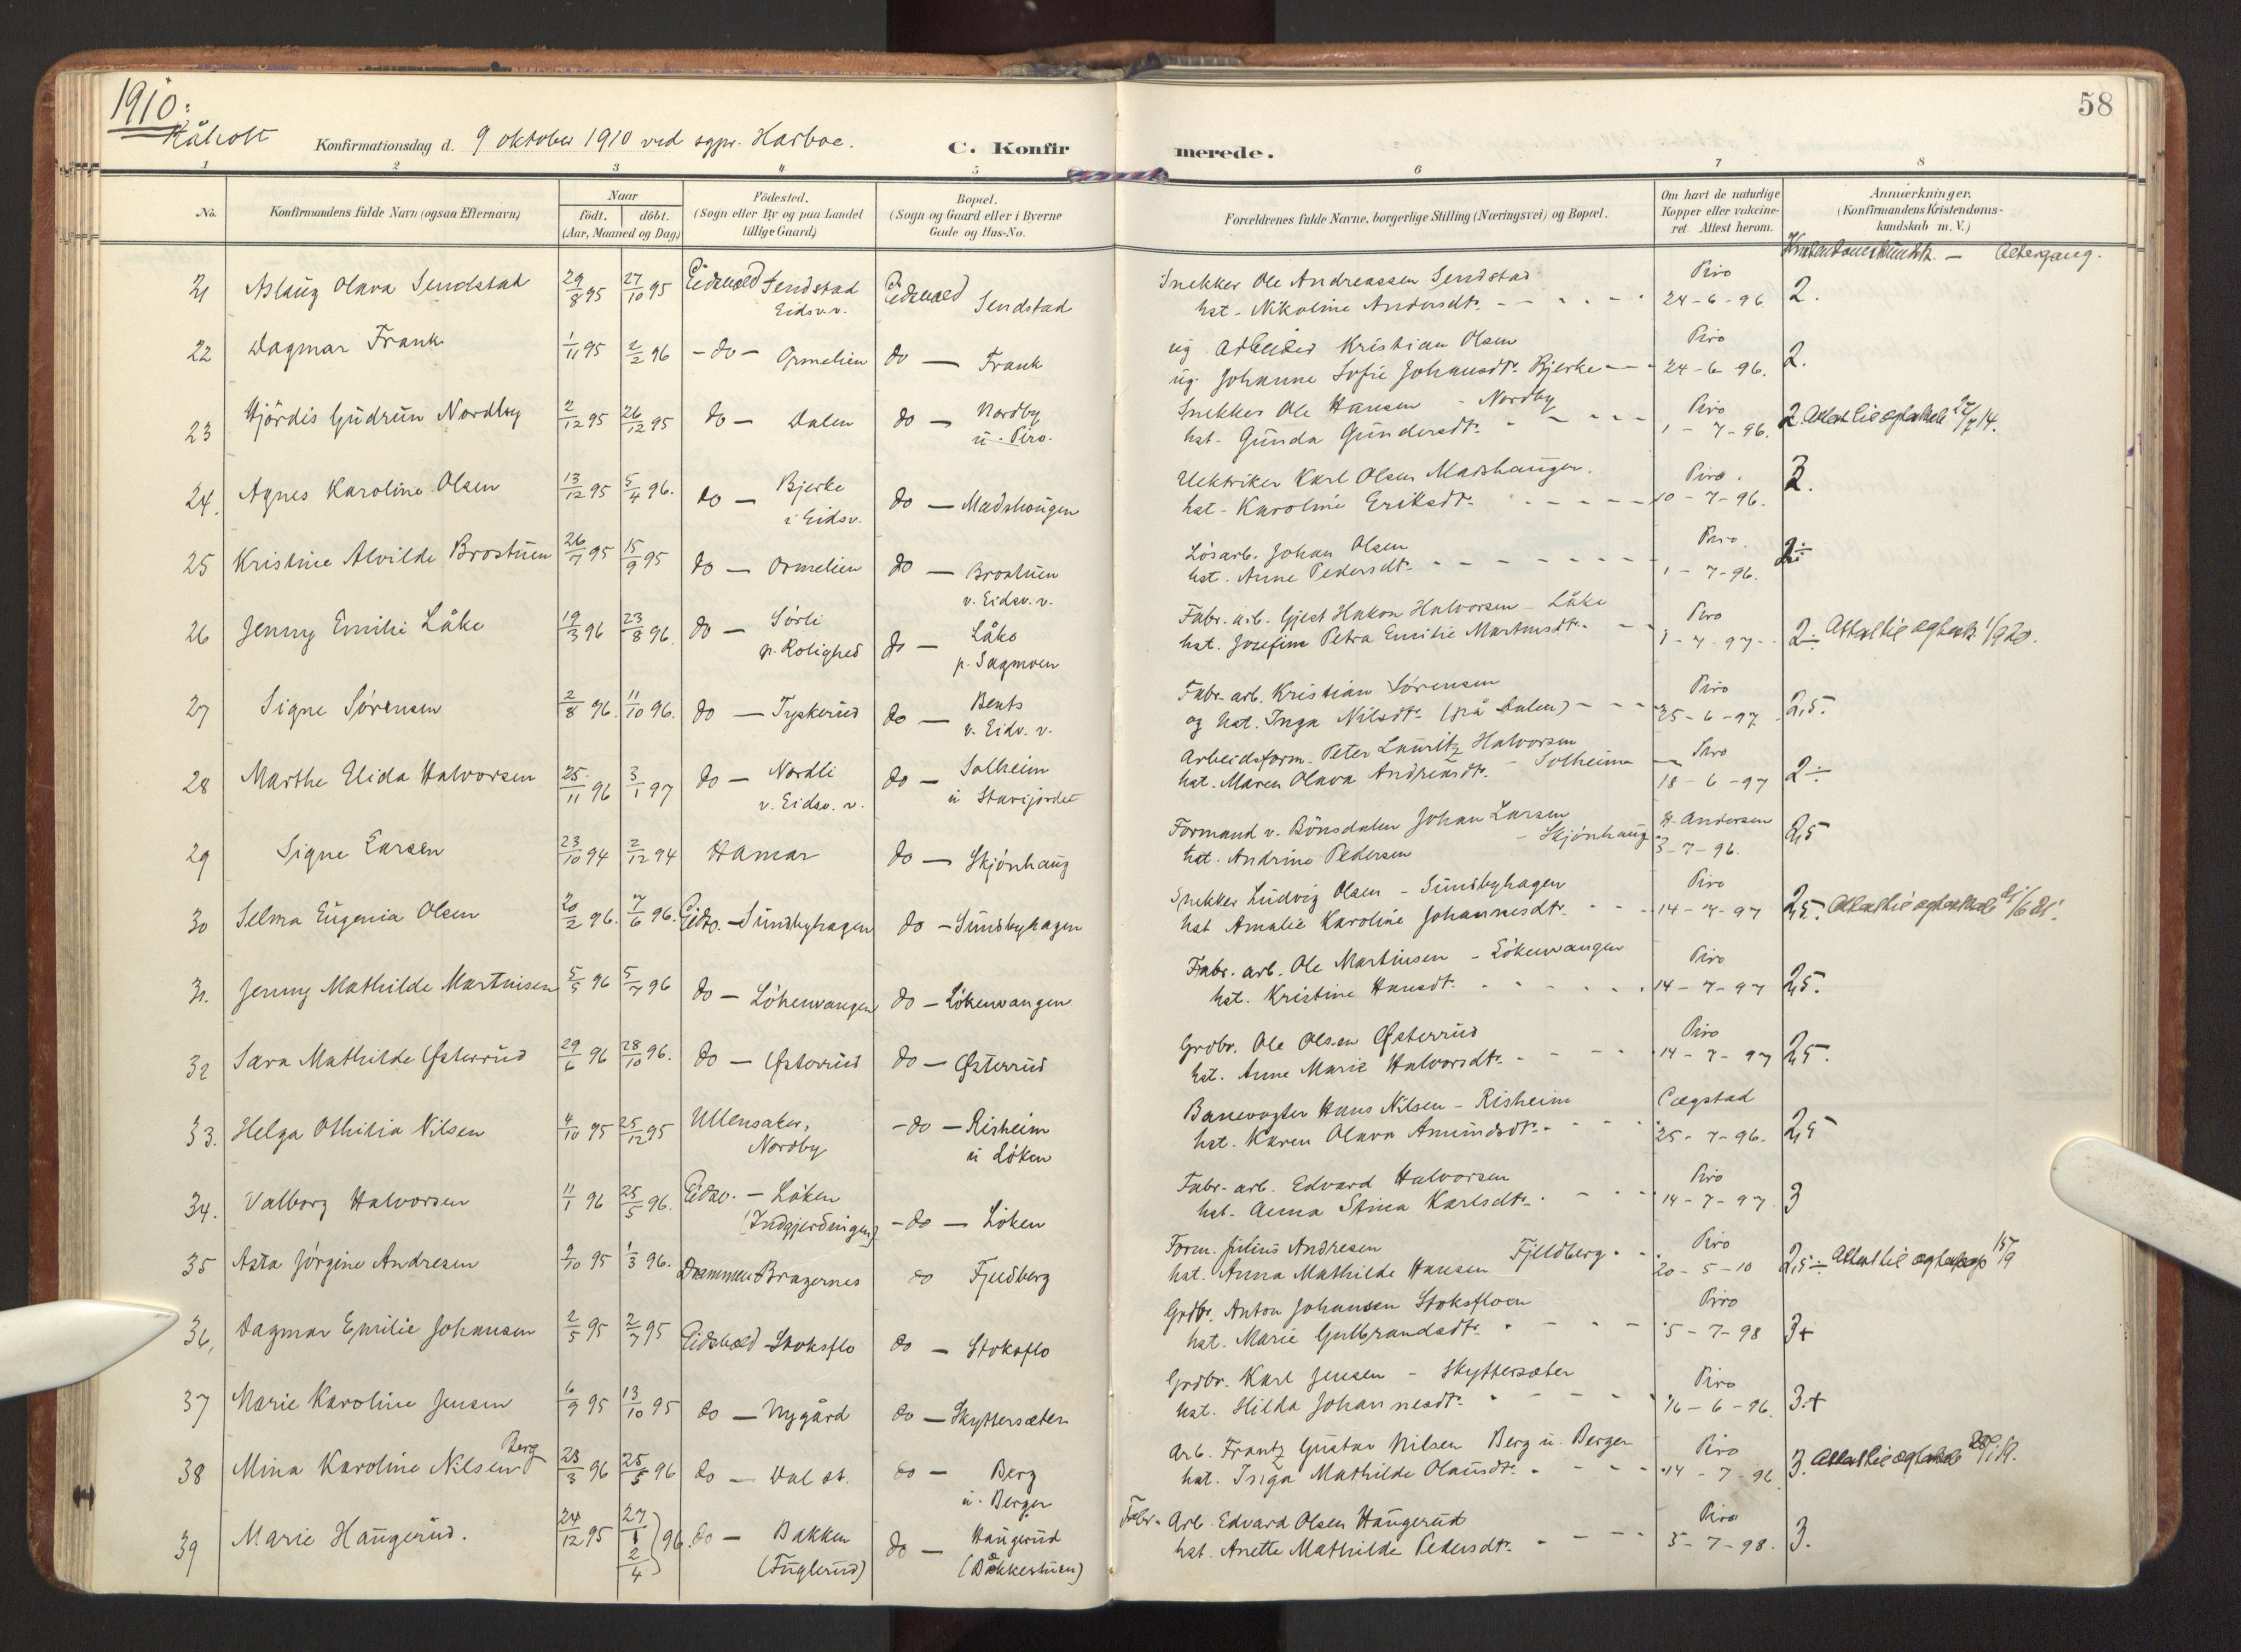 1910.
58
Råholt
Konfirmationsdag d. 9 oktober 1910 ved sgpr. Harboe.
C. Konfir
merede.
1 2 3 4 5 6 7 8
No.
Konfirmandens fulde Navn (ogsaa Efternavn)
Naar
födt. döbt.
(Aar, Maaned og Dag)
Födested.
(Sogn eller By og paa Landet
tillige Gaard)
Bopæl.
(Sogn og Gaard eller i Byerne
Gade og Hus-No.
Forældrenes fulde Navne, borgerlige Stilling (Næringsvei) og Bopæl.
Om havt de naturlige
Kopper eller vakcine-
ret. Attest herom.
Anmærkninger.
(Konfirmandens Kristendoms-
kundskab m. V.)
21 Aslaug Olava Sendstad 29/8 95 27/10 95 Eidsvold Sendstad Eidsvold Sendstad
Eidsv.v.
Snekker Ole Andreassen Sendstad Piro
hst. Nikoline Andersdtr. 24-6-96 2.
22 Dagmar Frank 1/11 95 2/2 96 -do- Ormelien do — Frank
ug. Arbeider Kristian Olsen Piro
ug. Johanne Sofie Johansdtr. Bjerke 24-6-96. 2.
23 Hjördis Gudrun Nordby 2/12 95 26/12 95 do — Dalen do — Nordby
u. Piro.
Snekker Ole Hansen - Nordby Piro
hst. Gunda Gundersdtr. 1-7-96. 2.
24. Agnes Karoline Olsen 13/12 95 5/4 96. do — Bjerke do — Madshaugen
i Eidsv.
Elektriker Karl Olsen Madshaugen. Piro.
hst. Karoline Eriksdtr. 10-7-96.
25 Kristine Alvilde Brostuen 26/7 95 15/9 95 do — Ormelien do — Brostuen
v. Eidsv. v.
Lösarb. Johan Olsen Piro.
hst. Anne Pedersdtr. 1-7-96. 2÷
26 Jenny Emilie Låke 19/3 96 23/8 96. do — Sörli do — Låke
p. Rolighed p. Sagmoen
Fabr. arb. Gjest Hakon Halvorsen - Låke Piro
hst. Josefine Petra Emilie Martinsdtr. 1-7-97 2÷
27 Signe Sörensen 2/8 96. 11/10 96. do — Tyskerud do — Bents
v. Eidv. v.
Fabr. arb. Kristian Sörensen Piro
og hst. Inga Nilsdtr. (på Dalen) 25-6-97 2,5.
28 Marthe Elida Halvorsen 25/11 96 3/1 97 do — Nordli do — Solheim
v. Eidsv. v. u Starijordet
Arbeidsform. Peter Lauritz Halvorsen Piro
hst. Maren Olava Andreasdtr. - Solheim 18-6-97 2÷
29 Signe Larsen 23/10 94 2/12 94 Hamar do — Skjönhaug
Formand v. Bönsdalen Johan Larsen Andersen
hst. Andrine Pedersen - Skjönhaug 3-7-96. 2,5
30 Selma Eugenia Olsen 20/2 96. 7/6 96. Eidsv. — Sundbyhagen do — Sundbyhagen
Snekker Ludvig Olsen - Sundbyhagen Piro
hst Amalie Karoline Johannesdtr. 14-7-97 2,5.
31. Jenny Mathilde Martinsen 5/5 96 5/7 96 do — Lökenvangen do — Lökenvangen
Fabr. arb. Ole Martinsen - Lökenvangen Piro
hst. Kristine Hansdt. 14-7-97 2,5.
32 Sara Mathilde Østerrud 29/6 96 28/10 96. do — Østerrud do — Østerrud
Grdbr. Ole Olsen Østerrud Piro
hst. Anne Marie Halvorsdtr. 14-7-97 2,5.
33. Helga Othilia Nilsen 4/10 95 25/12 95 Ullensaker, -do — Risheim
Nordby u Löken
Banevogter Hans Nilsen - Risheim Cægstad
hst. Karen Olava Amundsdtr. 25-7-96. 2,5
34. Valborg Halvorsen 11/1 96 25/5 96. Eidsv. — Löken -do — Löken
(Indgjerdingen)
Fabr. arb. Edvard Halvorsen Piro
hst. Anna Stina Karlsdtr. 14-7-97 3
35 Asta Jörgine Andresen 9/10 95 1/3 96. Drammen Bragernes do Fjeldberg
Form. Julius Andresen Piro
hst. Anna Mathilde Hansen Fjeldberg 20-5-10 2,5÷
36, Dagmar Emilie Johansen 2/5 95 2/7 95 Eidsvold Stoksflo do — Stoksflo
Grdbr. Anton Johansen Stoksfloen Piro
hst. Marie Gulbrandsdtr. 5-7-98 3+
37 Marie Karoline Jensen 6/9 95 13/10 95 do — Nygård do — Skyttersæter
Grdbr. Karl Jensen - Skyttersæter Piro
hst. Hilda Johannesdtr. 16-6-96. 3.+
38 Mina Karoline Nilsen Berg 23/3 96 25/5 96 do — Dal st. do — Berg
u. Berger
Arb. Frantz Gustav Nilsen Berg u. Berger Piro
hst. Inga Mathilde Olausdtr. 14-7-96 3.
39 Marie Haugerud. 24/12 95 27/1 2/4 } 96. do — Bakken do — Haugerud
(Fuglerud) (Bakkestuen)
Fabr. Arb. Edvard Olsen Haugerud Piro
hst. Anette Mathilde Pedersdtr. 5-7-98. 3.